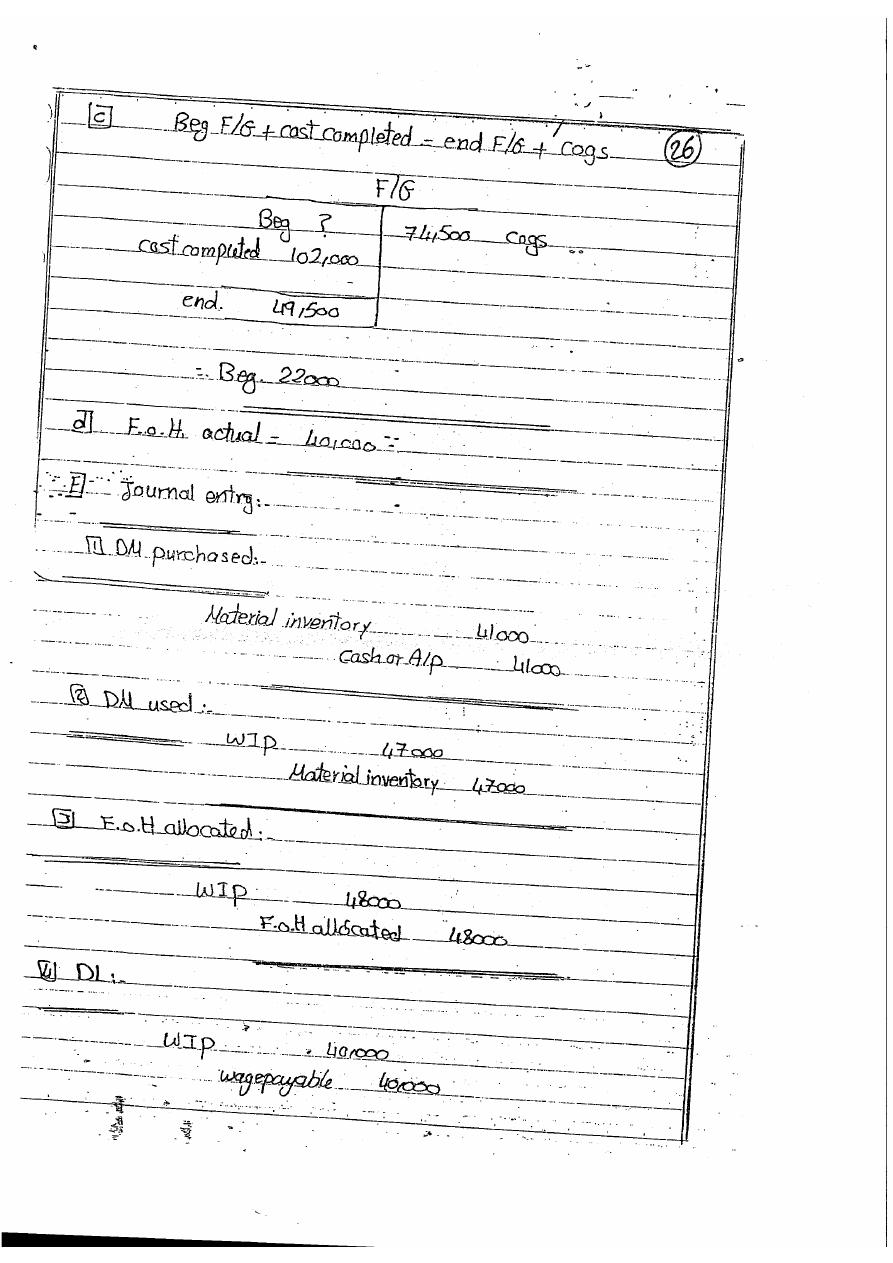 c Beg F/G + cost completed = end F/G + Cogs 26
F/G
Beg ? 74,500 Cogs
cost completed 102,000
end. 49,500
∴ Beg. 22000
d F.o.H. actual = 40,000
E Journal entry:-
1 DM purchased:-
Material inventory 41000
Cash or A/p 41000
2 DM used:-
WIP 47000
Material inventory 47000
3 F.o.H allocated:-
WIP 48000
F.o.H allocated 48000
4 DL:-
WIP 40,000
wage payable 40,000